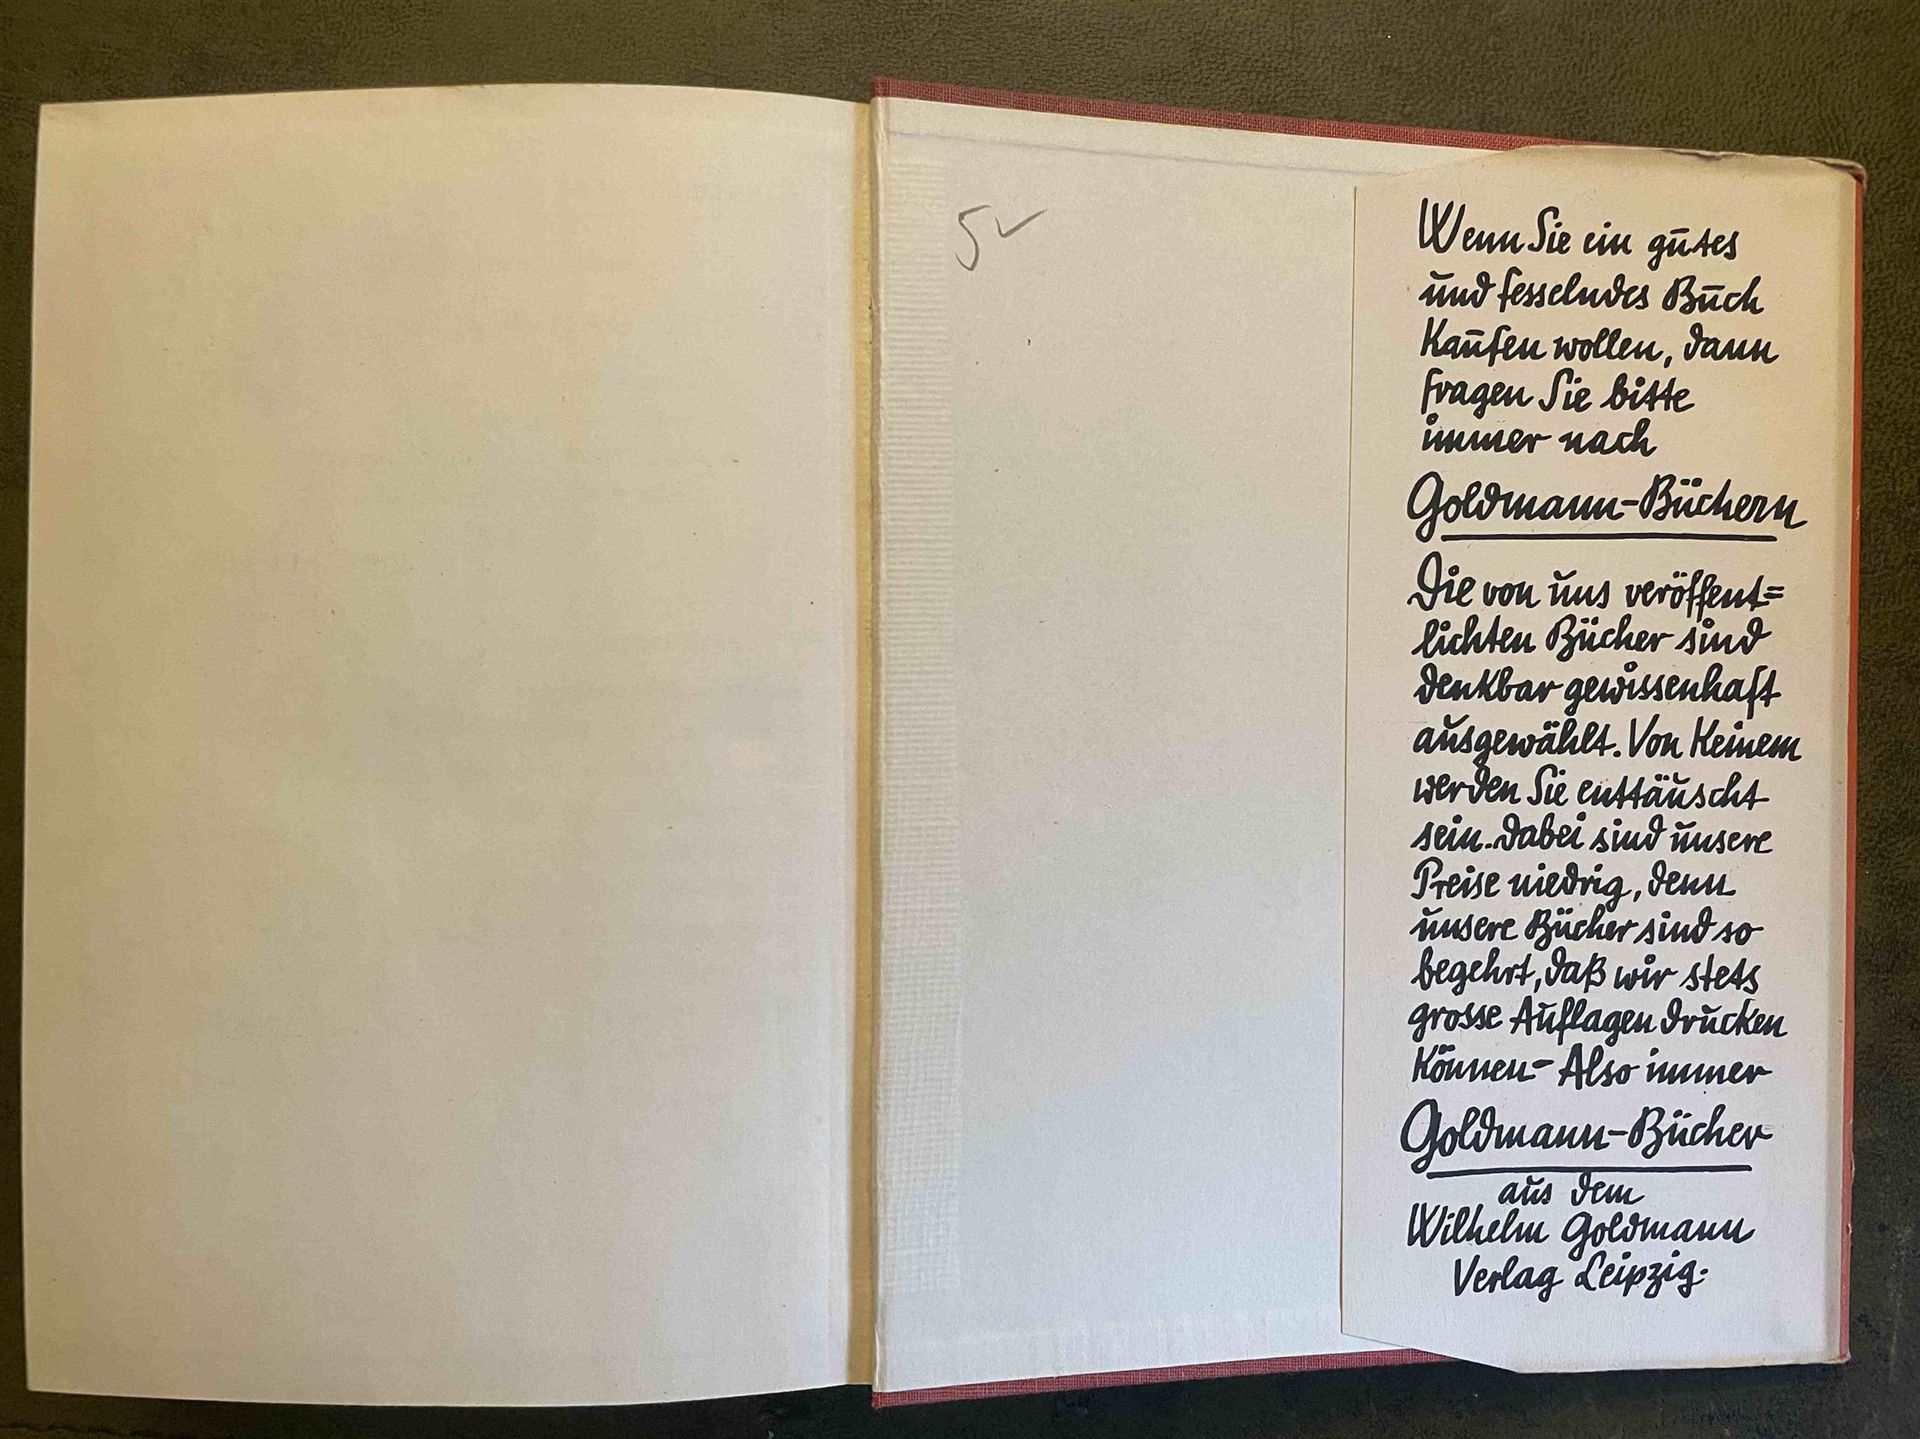 5
Wenn Sie ein gutes
und fesselndes Buch
kaufen wollen, dann
fragen Sie bitte
immer nach
Goldmann-Büchern
Die von uns veröffent=
lichten Bücher sind
denkbar gewissenhaft
ausgewählt. Von keinem
werden Sie enttäuscht
sein. Dabei sind unsere
Preise niedrig, denn
unsere Bücher sind so
begehrt, daß wir stets
grosse Auflagen drucken
können- Also immer
Goldmann-Bücher
aus dem
Wilhelm Goldmann
Verlag Leipzig.